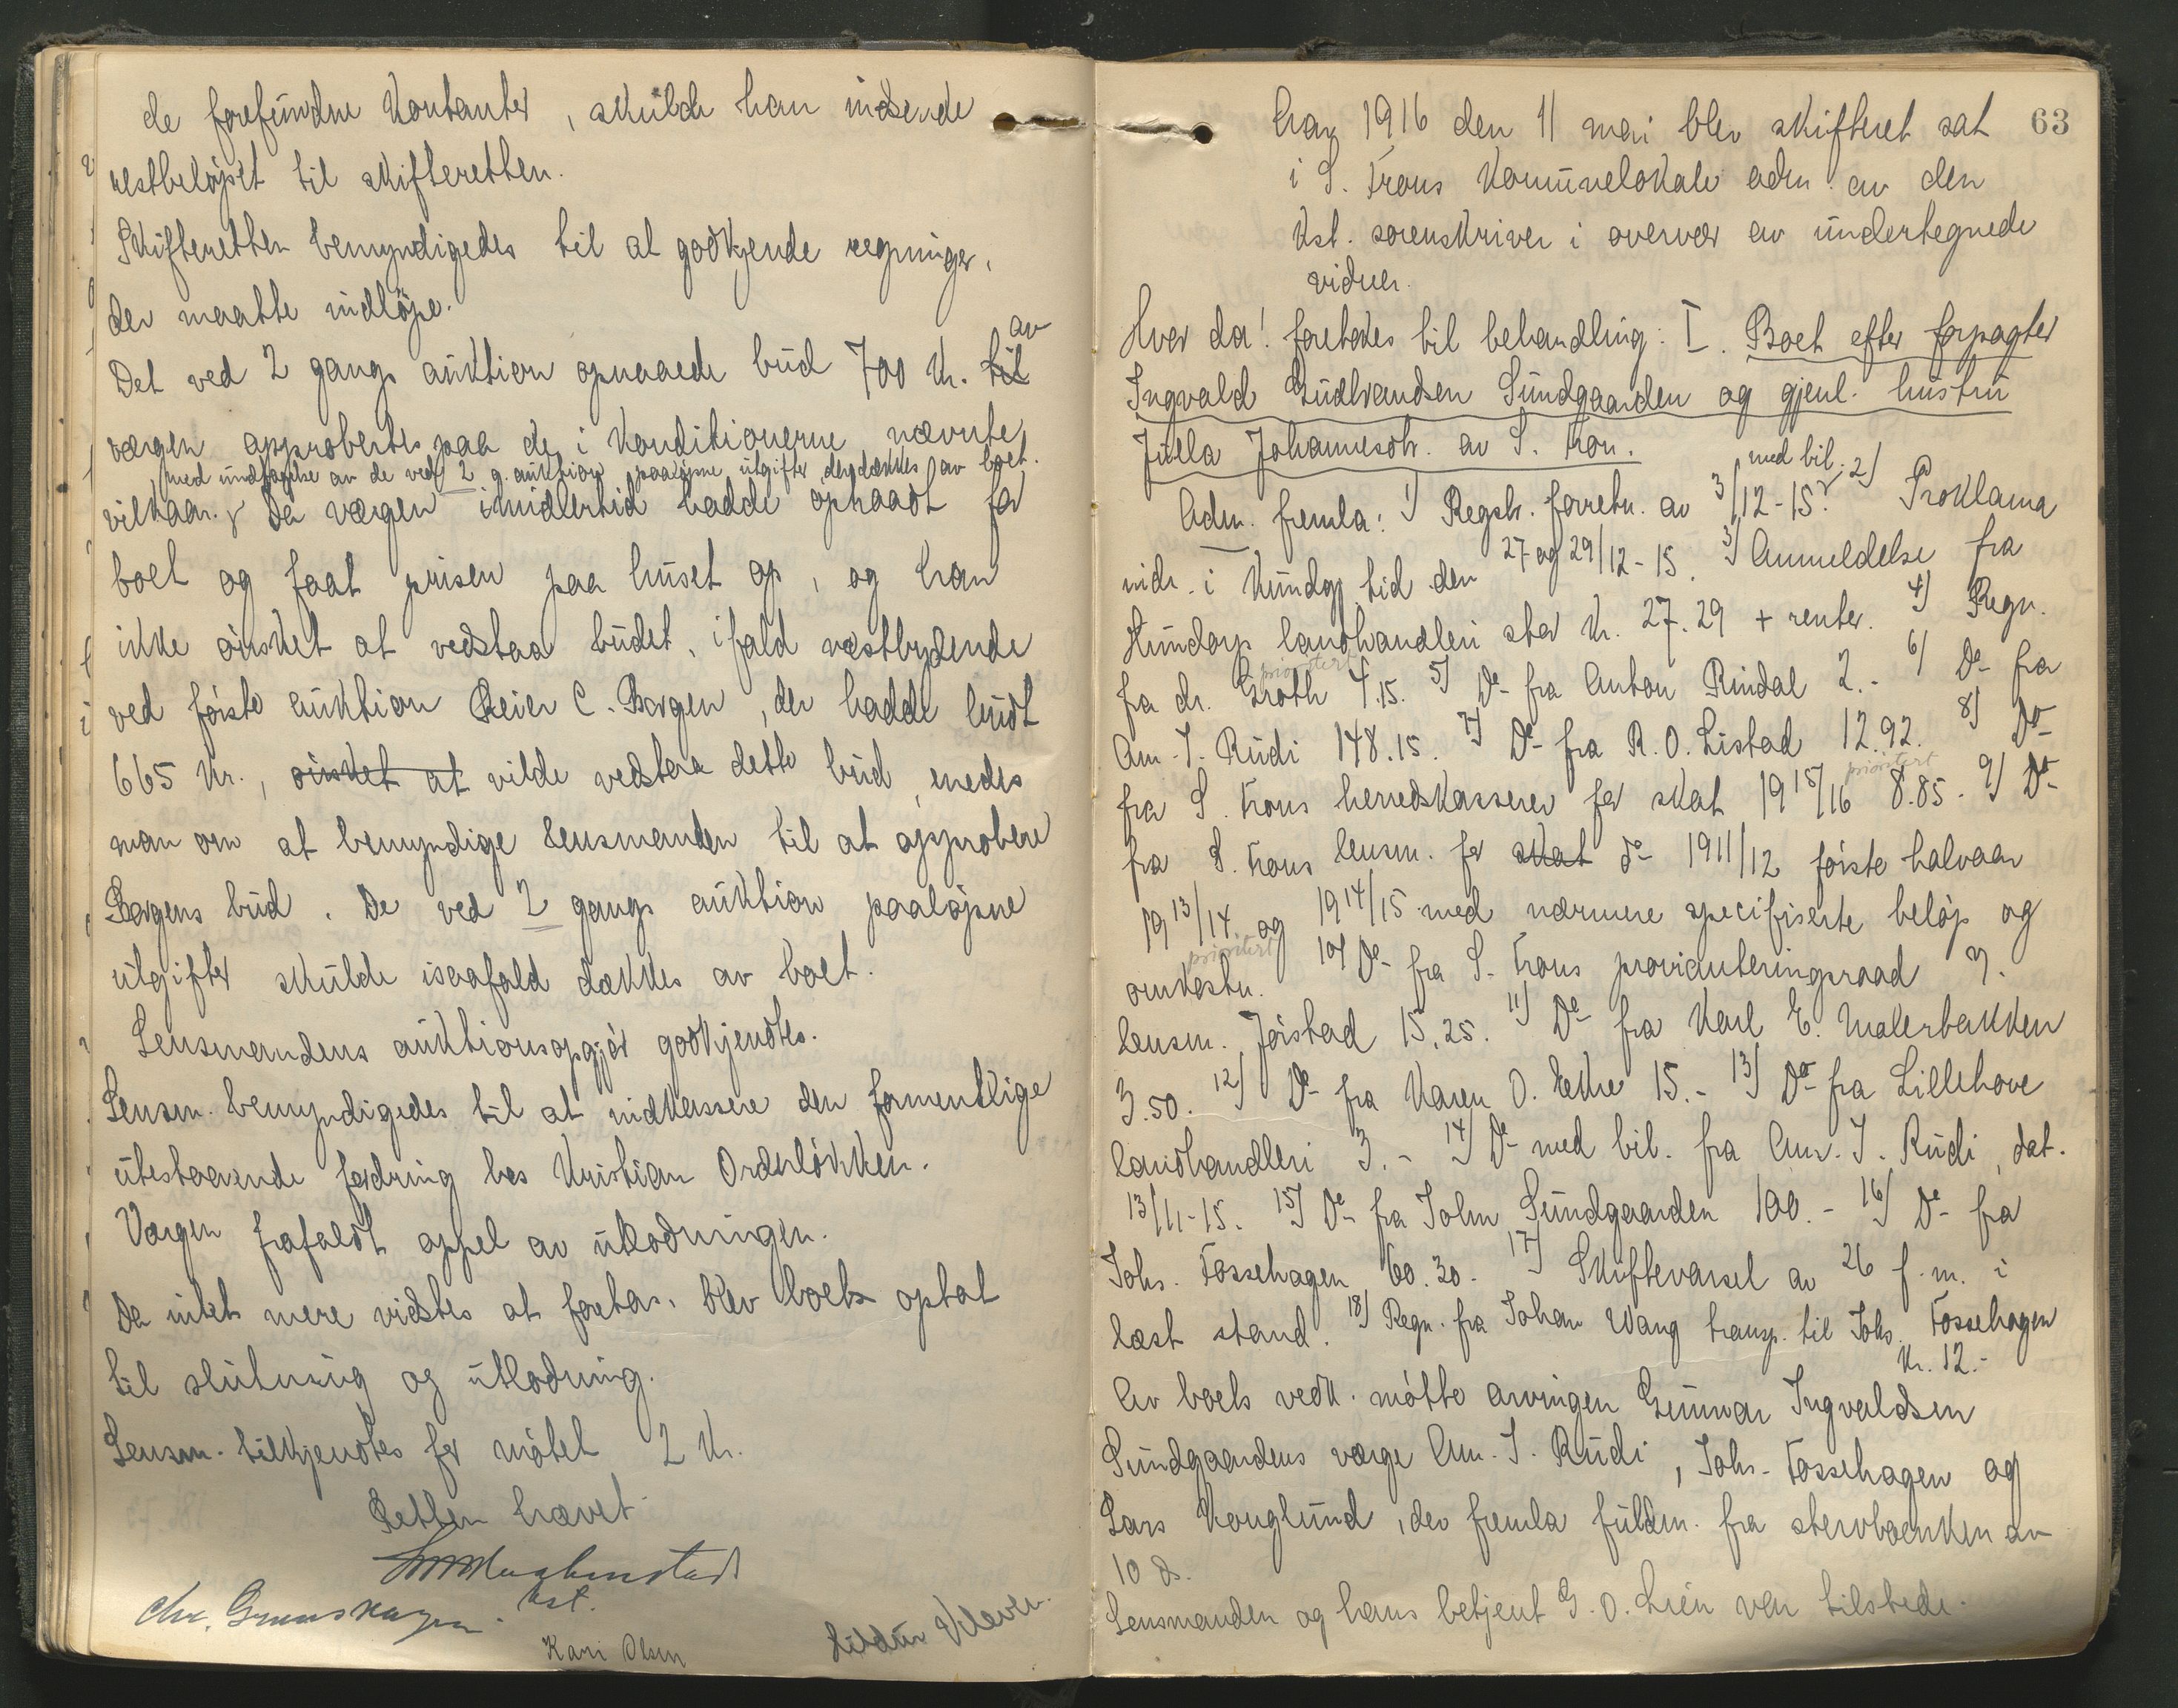 de forefundne kontanter, skulde han indsende
restbeløpet til skifteretten.
Skifteretten bemyndigedes til at godkjende regninger,
der maatte indløpe.
Det ved 2 gangs auktion opnaaede bud 700 kr. til av
værgen approbertes paa de i konditionerne nævnte
med undtagelse av de ved 2 g. auktion paaløpne utgifter der dækkes av boet.
vilkaar. Da værgen imidlertid hadde opnaadd for
boet og faat prisen paa huset op, og han
ikke ønsket at vedstaa budet, ifald næstbydende
ved første auktion Reier C. Borgen, der hadde budt
665 kr., ønsket at vilde vedstaa dette bud, enedes
man om at bemyndige lensmanden til at approbere
Borgens bud. De ved 2 gangs auktion paaløpne
utgifter skulde isaafald dækkes av boet.
Lensmandens auktionsopgjør godkjendtes.
Lensm. bemyndigedes til at indkassere den formentlige
utestaaende fordring hos Kristian Orderløkken.
Værgen frafaldt appel av utlodningen.
Da intet mere vidstes at foretas, blev boets optat
til slutning og utlodning.
Lensm. tilkjendtes for møtet 2 kr.
Retten hævet.
kst.
Chr.
Kari Olsen
Kleven.
63
Aar 1916 den 11 mai blev skifteret sat
i S. Frons kommunelokale adm. av den
kst. sorenskriver i overvær av undertegnede
vidner.
Hvor da! foretokes til behandling: I. Boet efter forpagter
Ingvald Gudbrandsen Sundgaarden og gjenl. hustru
Julla Johannesdtr. av S. Fron.
Adm. fremla: 1) Regstr. forretn. av 3/12-15. med bil. 2) Proklama
indr. i Kundgj. tid. den 27 og 29/12-15. 3) Anmeldelse fra
Hundorp landhandleri stor kr. 27.29 + renter. 4) Regn.
prioritert
fra dr. Groth 4.15. 5) Do fra Anton Rindal 2.- 6) Do fra
Am. I. Rudi 148.15. 7) Do fra R. O. Listad 12.92. 8) Do
prioritert
fra S. Frons herredskasserer for skat 1915/16 8.85. 9) Do
fra S. Frons lensm. for skat do 1911/12 første halvaar
1913/14. og 1914/15 med nærmere specifiserte beløp og
prioritert
omkostn. 10) Do fra S. Frons provianteringsraad v.
lensm. Jørstad 15.25. 11) Do fra Karl E. Malerbakken
3.50. 12) Do fra Karen O. Eekre 15.- 13) Do fra Lillehove
landhandleri 3.- 14) Do med bil. fra Am. I. Rudi, dat.
13/11-15. 15) Do fra John Sundgaarden 100.- 16) Do fra
Johs. Fossehagen 60.30. 17) Skiftevarsel av 26 f. m. i
læst stand. 18) Regn. fra Johan Wang transp. til Johs. Fossehagen
kr. 12.-
Av boets vedk. møtte arvingen Gunnar Ingvaldsen
Sundgaardens værge Am. I. Rudi, Johs. Fossehagen og
Lars Konglund, der fremla fuldm. fra stervboenken av
10 ds.
Lensmanden og hans betjent G. O. Lien var tilstede.